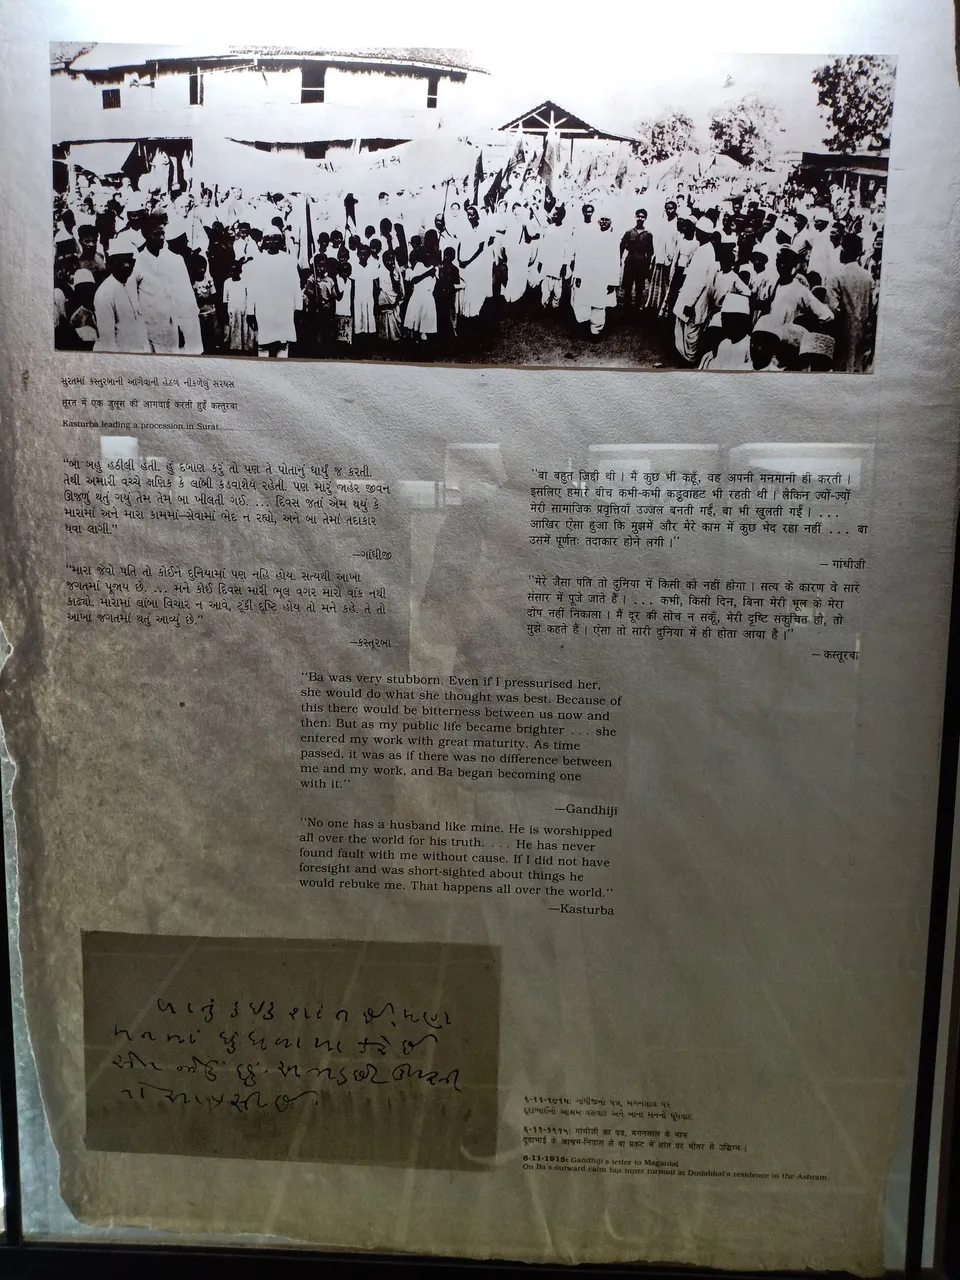 સુરતમાં કસ્તુરબાની આગેવાની હેઠળ નીકળેલું સરઘસ
सूरत में एक जुलूस की आगवाई करती हुईं कस्तुरबा
Kasturba leading a procession in Surat
“બા બહુ હઠીલી હતી. હું દબાણ કરું તો પણ તે પોતાનું ધાર્યું જ કરતી.
તેથી અમારી વચ્ચે ક્ષણિક કે લાંબી કડવાશેય રહેતી. પણ મારું જાહેર જીવન
ઊજળું થતું ગયું તેમ તેમ બા ખીલતી ગઈ. ... દિવસ જતાં એમ થયું કે
મારામાં અને મારા કામમાં—સેવામાં ભેદ ન રહ્યો, અને બા તેમાં તદાકાર
થવા લાગી.”
—ગાંધીજી
“મારા જેવો પતિ તો કોઈને દુનિયામાં પણ નહિ હોય. સત્યથી આખા
જગતમાં પૂજાય છે. ... મને કોઈ દિવસ મારી ભૂલ વગર મારો વાંક નથી
કાઢ્યો. મારામાં લાંબા વિચાર ન આવે, ટૂંકી દૃષ્ટિ હોય તો મને કહે. તે તો
આખા જગતમાં થતું આવ્યું છે.”
—કસ્તૂરબા
“बा बहुत ज़िद्दी थी । मैं कुछ भी कहूँ, वह अपनी मनमानी ही करती ।
इसलिए हमारे बीच कभी-कभी कड़ूवाहट भी रहती थी । लेकिन ज्यों-ज्यों
मेरी सामाजिक प्रवृत्तियाँ उज्जल बनती गईं, बा भी खुलती गईं । ...
आखिर ऐसा हुआ कि मुझमें और मेरे काम में कुछ भेद रहा नहीं ... बा
उसमें पूर्णतः तदाकार होने लगी ।”
— गांधीजी
“मेरे जैसा पति तो दुनिया में किसी को नहीं होगा । सत्य के कारण वे सारे
संसार में पूजे जाते हैं । ... कभी, किसी दिन, बिना मेरी भूल के मेरा
दोष नहीं निकाला । मैं दूर की सोच न सकूँ, मेरी दृष्टि संकुचित हो, तो
मुझे कहते हैं । ऐसा तो सारी दुनिया में ही होता आया है ।”
— कस्तूरबा
“Ba was very stubborn. Even if I pressurised her,
she would do what she thought was best. Because of
this there would be bitterness between us now and
then. But as my public life became brighter ... she
entered my work with great maturity. As time
passed, it was as if there was no difference between
me and my work, and Ba began becoming one
with it.”
—Gandhiji
“No one has a husband like mine. He is worshipped
all over the world for his truth. ... He has never
found fault with me without cause. If I did not have
foresight and was short-sighted about things he
would rebuke me. That happens all over the world.”
—Kasturba
૬-૧૧-૧૯૧૫: ગાંધીજીનો પત્ર, મગનલાલ પર
દૂદાભાઈનો આશ્રમ વસવાટ અને બાના મનનો ધૂંધવાટ
६-११-१९१५: गांधीजी का पत्र, मगनलाल के नाम
दुदाभाई के आश्रम-निवास से बा प्रकट में शांत पर भीतर से उद्विग्न ।
6-11-1915: Gandhiji's letter to Maganlal
On Ba's outward calm but inner turmoil at Dudabhai's residence in the Ashram.